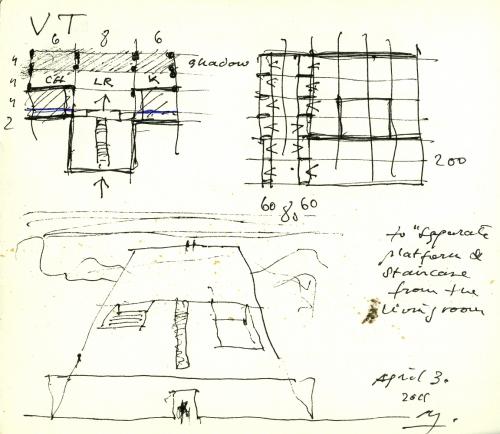 VT
6 8 6
4
4
4
2
shadow
CH LR K
200
60 80 60
to "separate
platform &
staircase
from the
living room
April 3.